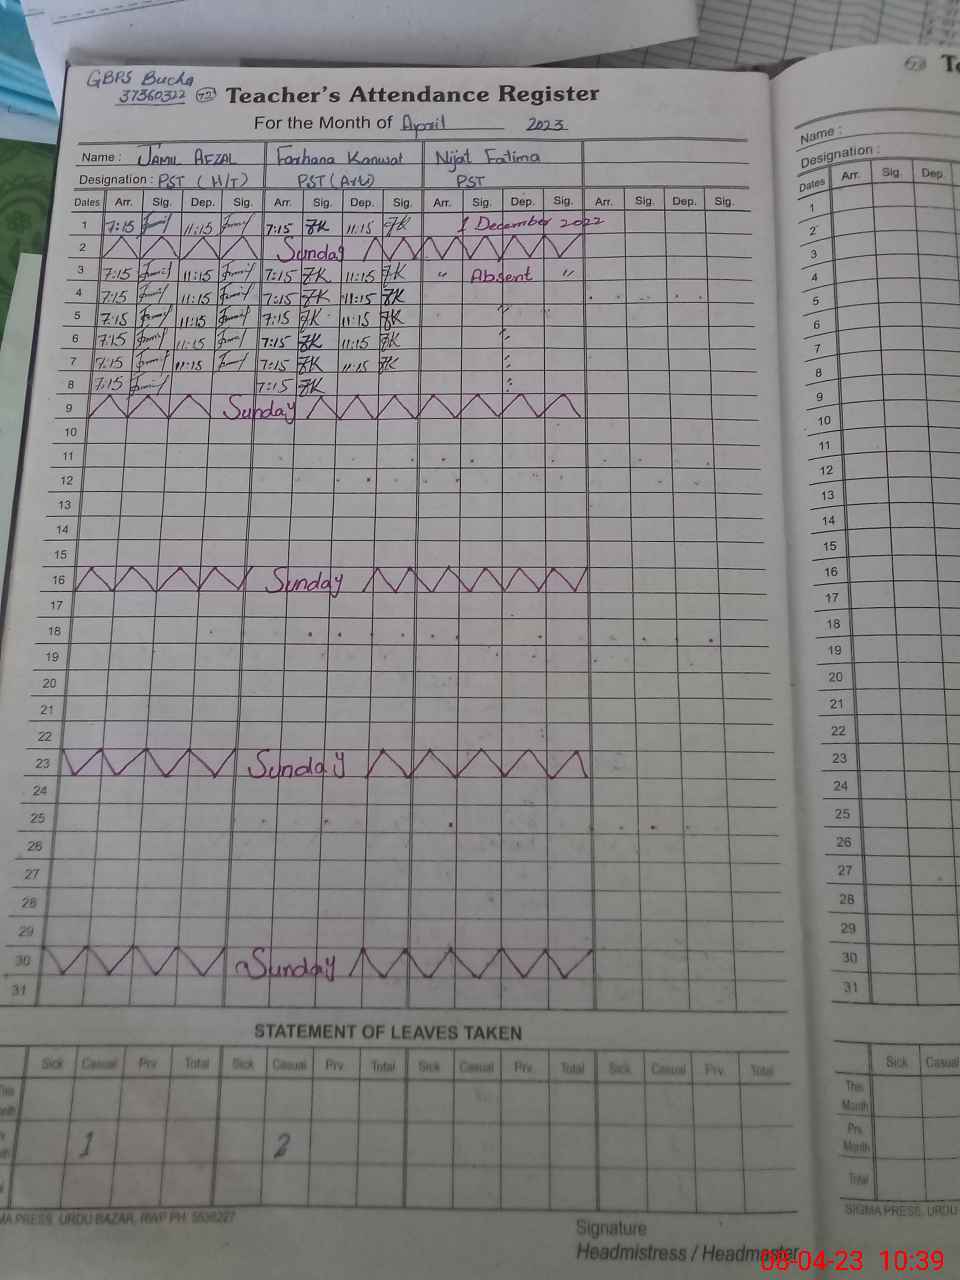 GBPS Bucha
37360322 72 Teacher's Attendance Register
For the Month of April 2023
Name : JAMIL AFZAL Farhana Kanwal Nijat Fatima
Designation : PST (H/T) PST PST
Dates Arr. Sig. Dep. Sig. Arr. Sig. Dep. Sig. Arr. Sig. Dep. Sig. Arr. Sig. Dep. Sig.
1 7:15 11:15 7:15 FK 11:15 FK 1 December 2022
2 Sunday
3 7:15 11:15 7:15 FK 11:15 FK " Absent "
4 7:15 11:15 7:15 FK 11:15 FK
5 7:15 11:15 7:15 FK 11:15 FK
6 7:15 11:15 7:15 FK 11:15 FK
7 7:15 11:15 7:15 FK 11:15 FK
8 7:15 7:15 FK
9 Sunday
10
11
12
13
14
15
16 Sunday
17
18
19
20
21
22
23 Sunday
24
25
26
27
28
29
30 Sunday
31
STATEMENT OF LEAVES TAKEN
Sick Casual Prv Total Sick Casual Prv. Total Sick Casual Prv. Total Sick Casual Prv. Total
1 2
PRESS, URDU BAZAR, RWP PH: 5536227
Signature
Headmistress / Headmaster
73 Te
Name :
Designation :
Dates Arr. Sig. Dep.
1
2
3
4
5
6
7
8
9
10
11
12
13
14
15
16
17
18
19
20
21
22
23
24
25
26
27
28
29
30
31
Sick Casual
This
Month
Prv.
Month
Total
SIGMA PRESS, URDU
08-04-23 10:39